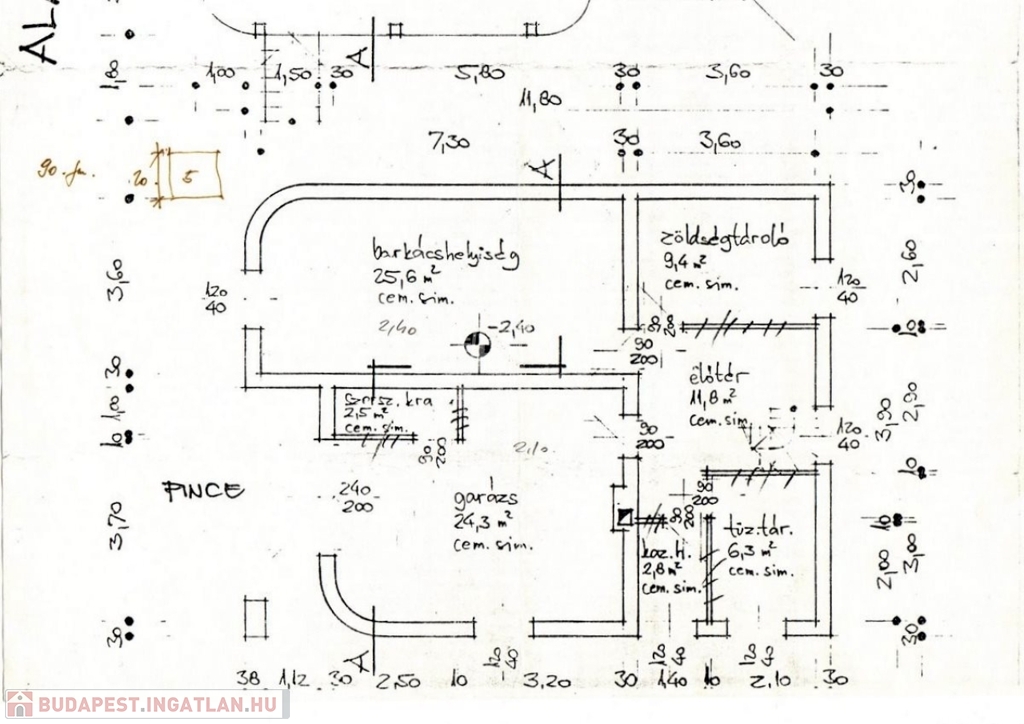 ALA
1,00
1,50
30
5,80
30
3,60
30
11,80
7,30
30
3,60
A
A
1,80
90 fm.
20
5
30
barkácshelyiség
25,6 m²
cem. sim.
zöldségtároló
9,4 m²
cem. sim.
3,60
120
40
120
40
2,60
2,40
-2,40
80
200
90
200
10
30
1,00
10
szersz. kra
2,5 m²
cem. sim.
előtér
11,8 m²
cem. sim.
2,90
3,90
90
200
2,10
90
200
120
40
10
PINCE
240
200
garázs
24,3 m²
cem. sim.
90
200
90
200
10
3,70
kaz. h.
2,8 m²
cem. sim.
tüz. tár.
6,3 m²
cem. sim.
2,00
3,00
30
A
120
40
120
40
120
40
30
38
1,12
30
2,50
10
3,20
30
1,40
10
2,10
30
BUDAPEST.INGATLAN.HU